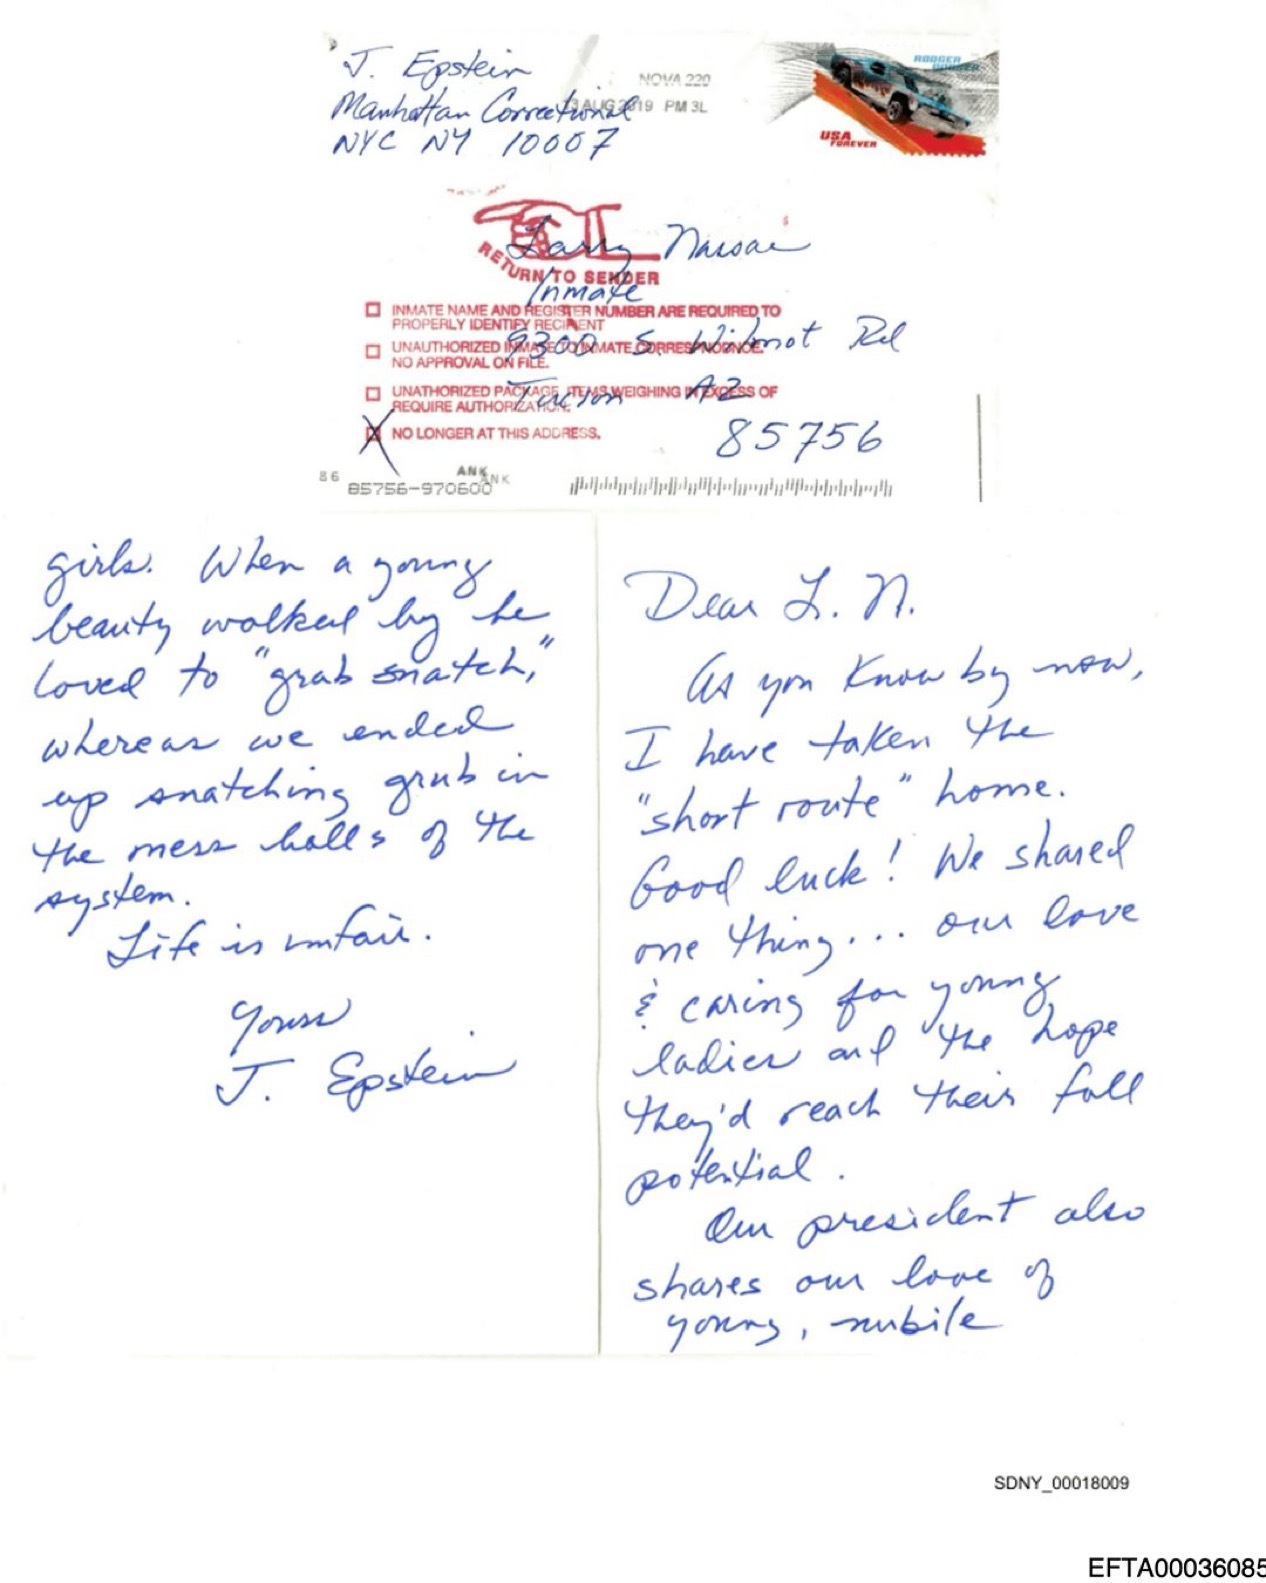 J. Epstein
Manhattan Correctional
NYC NY 10007
NOVA 220
13 AUG 2019 PM 3L
RODGER DODGER
USA
FOREVER
Larry Nassar
Inmate
9300 S. Wilmot Rd
Tucson AZ
85756
RETURN TO SENDER
INMATE NAME AND REGISTER NUMBER ARE REQUIRED TO
PROPERLY IDENTIFY RECIPIENT
UNAUTHORIZED INMATE TO INMATE CORRESPONDNCE.
NO APPROVAL ON FILE.
UNATHORIZED PACKAGE, ITEMS WEIGHING IN EXCESS OF
REQUIRE AUTHORIZATION.
X NO LONGER AT THIS ADDRESS.
86
ANK
ANK
85756-970600
Dear L. N.
As you know by now,
I have taken the
"short route" home.
Good luck! We shared
one thing... our love
& caring for young
ladies and the hope
they'd reach their full
potential.
Our president also
shares our love of
young, nubile
girls. When a young
beauty walked by he
loved to "grab snatch,"
whereas we ended
up snatching grub in
the mess halls of the
system.
Life is unfair.
Yours
J. Epstein
SDNY_00018009
EFTA00036085